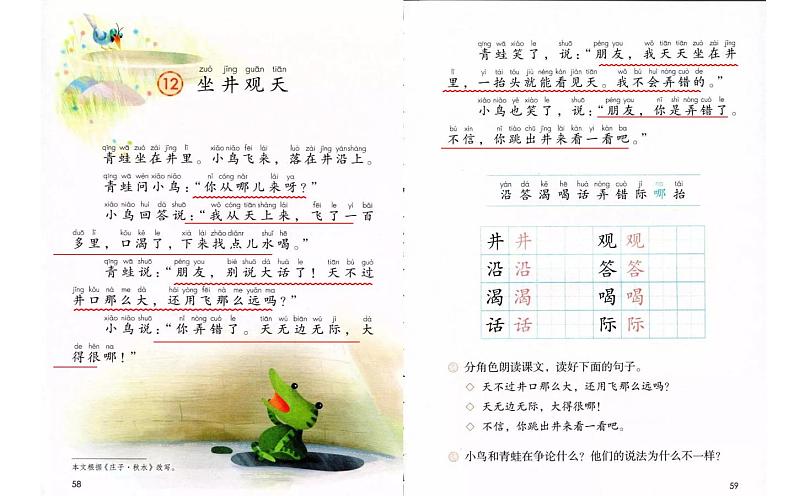 zuò jǐng guān tiān
12 坐井观天
qīng wā zuò zài jǐng lǐ xiǎo niǎo fēi lái luò zài jǐng yán shàng
青蛙坐在井里。小鸟飞来，落在井沿上。
qīng wā wèn xiǎo niǎo nǐ cóng nǎr lái ya
青蛙问小鸟：“你从哪儿来呀？”
xiǎo niǎo huí dá shuō wǒ cóng tiān shàng lái fēi le yì bǎi
小鸟回答说：“我从天上来，飞了一百
duō lǐ kǒu kě le xià lái zhǎo diǎnr shuǐ hē
多里，口渴了，下来找点儿水喝。”
qīng wā shuō péng you bié shuō dà huà le tiān bú guò
青蛙说：“朋友，别说大话了！天不过
jǐng kǒu nà me dà hái yòng fēi nà me yuǎn ma
井口那么大，还用飞那么远吗？”
xiǎo niǎo shuō nǐ nòng cuò le tiān wú biān wú jì dà
小鸟说：“你弄错了。天无边无际，大
de hěn na
得很哪！”
本文根据《庄子·秋水》改写。
58
qīng wā xiào le shuō péng you wǒ tiān tiān zuò zài jǐng
青蛙笑了，说：“朋友，我天天坐在井
lǐ yì tái tóu jiù néng kàn jiàn tiān wǒ bú huì nòng cuò de
里，一抬头就能看见天。我不会弄错的。”
xiǎo niǎo yě xiào le shuō péng you nǐ shì nòng cuò le
小鸟也笑了，说：“朋友，你是弄错了。
bú xìn nǐ tiào chū jǐng lái kàn yí kàn ba
不信，你跳出井来看一看吧。”
yán dá kě hē huà nòng cuò jì na tái
沿 答 渴 喝 话 弄 错 际 哪 抬
井 井 观 观
沿 沿 答 答
渴 渴 喝 喝
话 话 际 际
分角色朗读课文，读好下面的句子。
◇ 天不过井口那么大，还用飞那么远吗？
◇ 天无边无际，大得很哪！
◇ 不信，你跳出井来看一看吧。
小鸟和青蛙在争论什么？他们的说法为什么不一样？
59